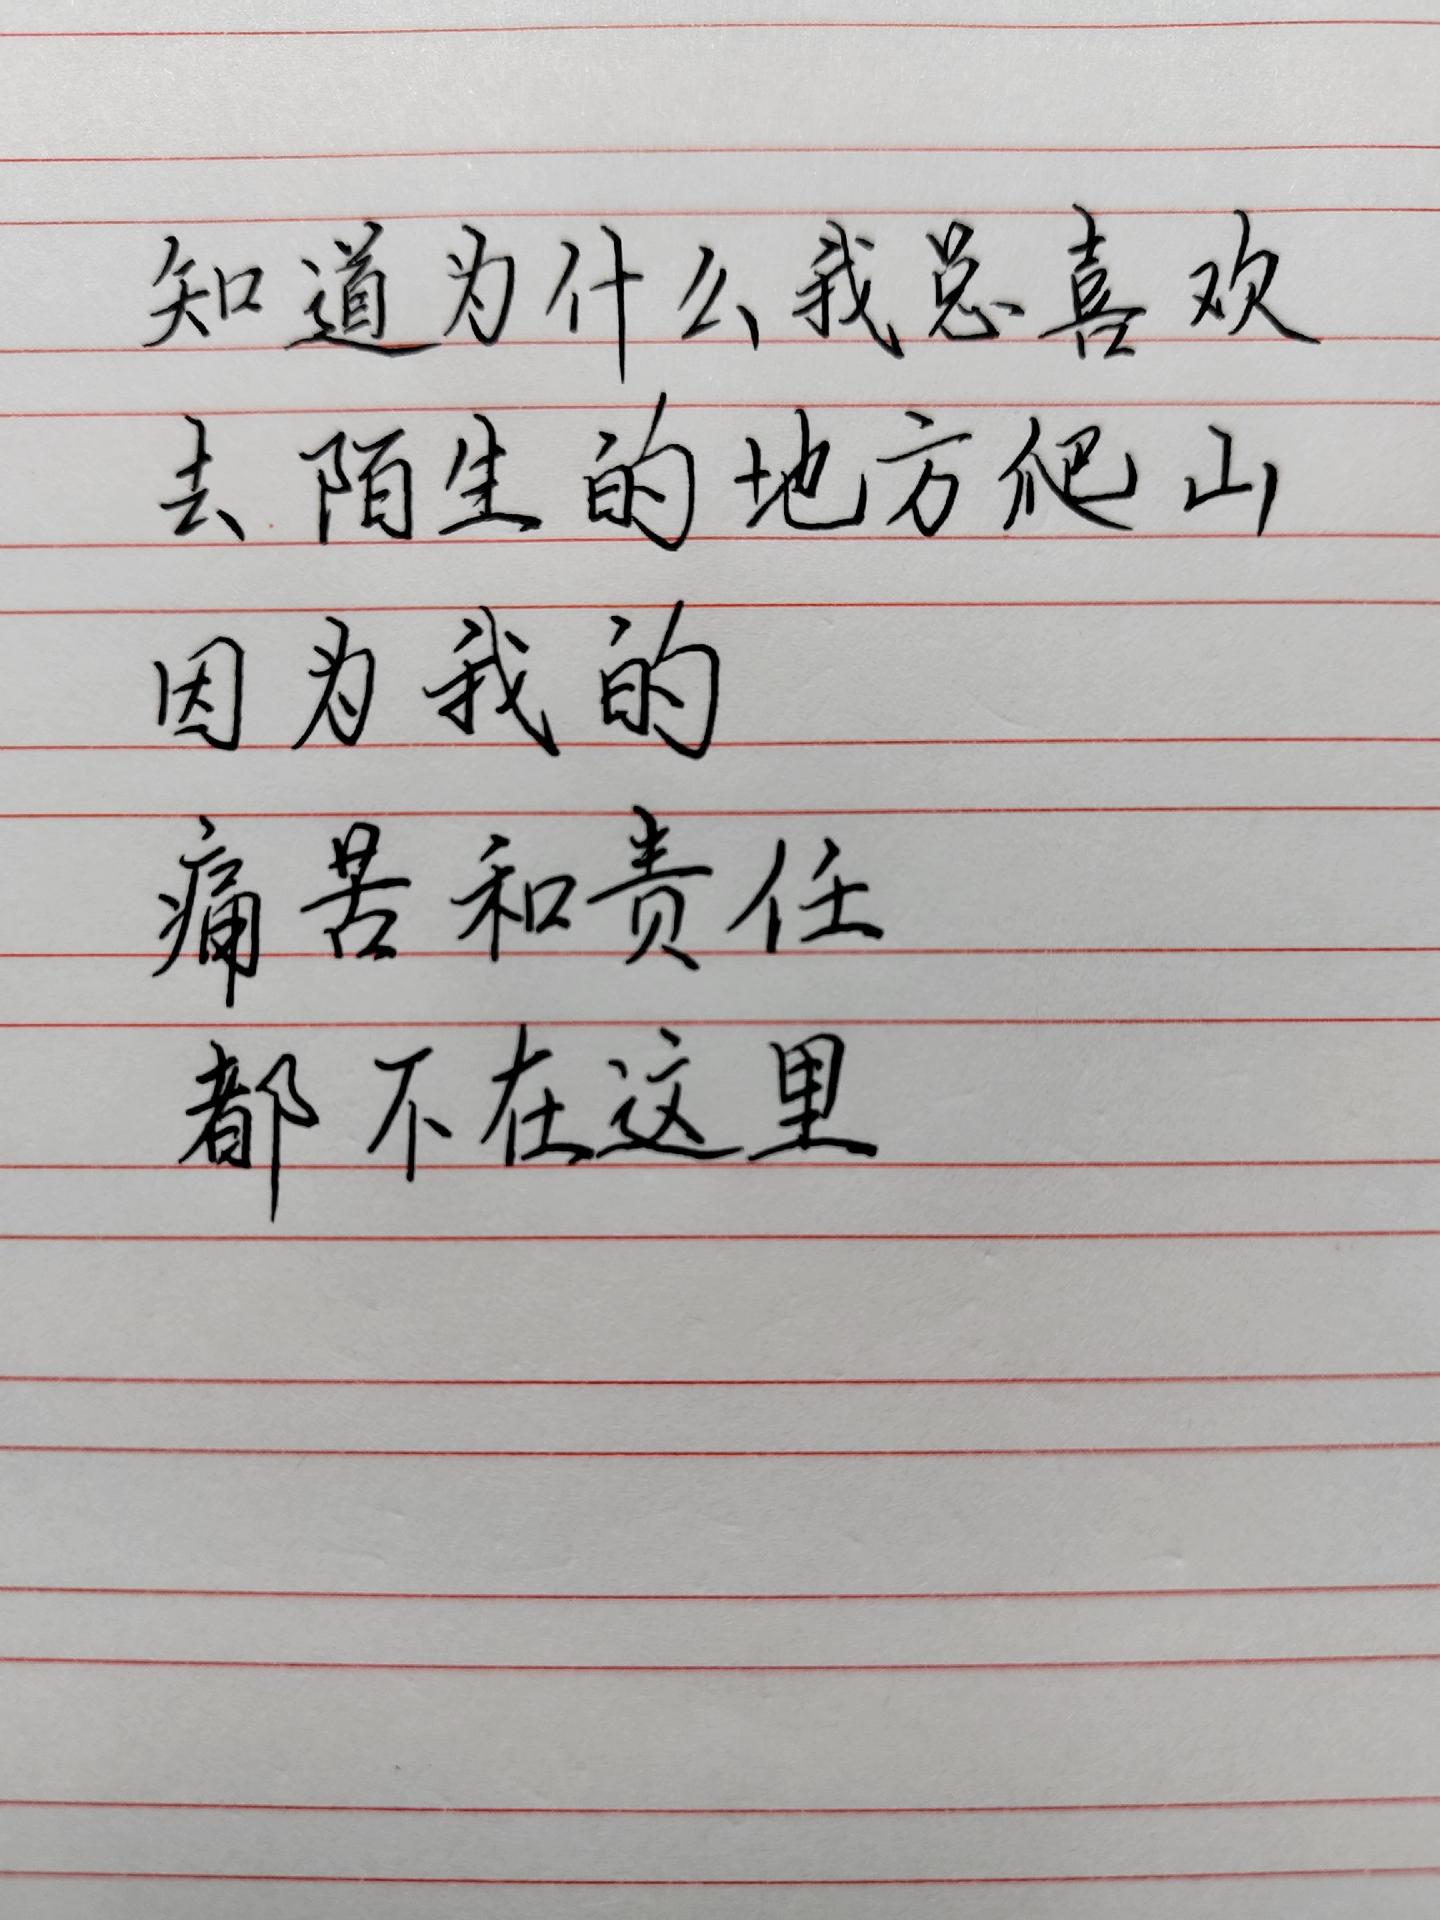 知道为什么我总喜欢
去陌生的地方爬山
因为我的
痛苦和责任
都不在这里